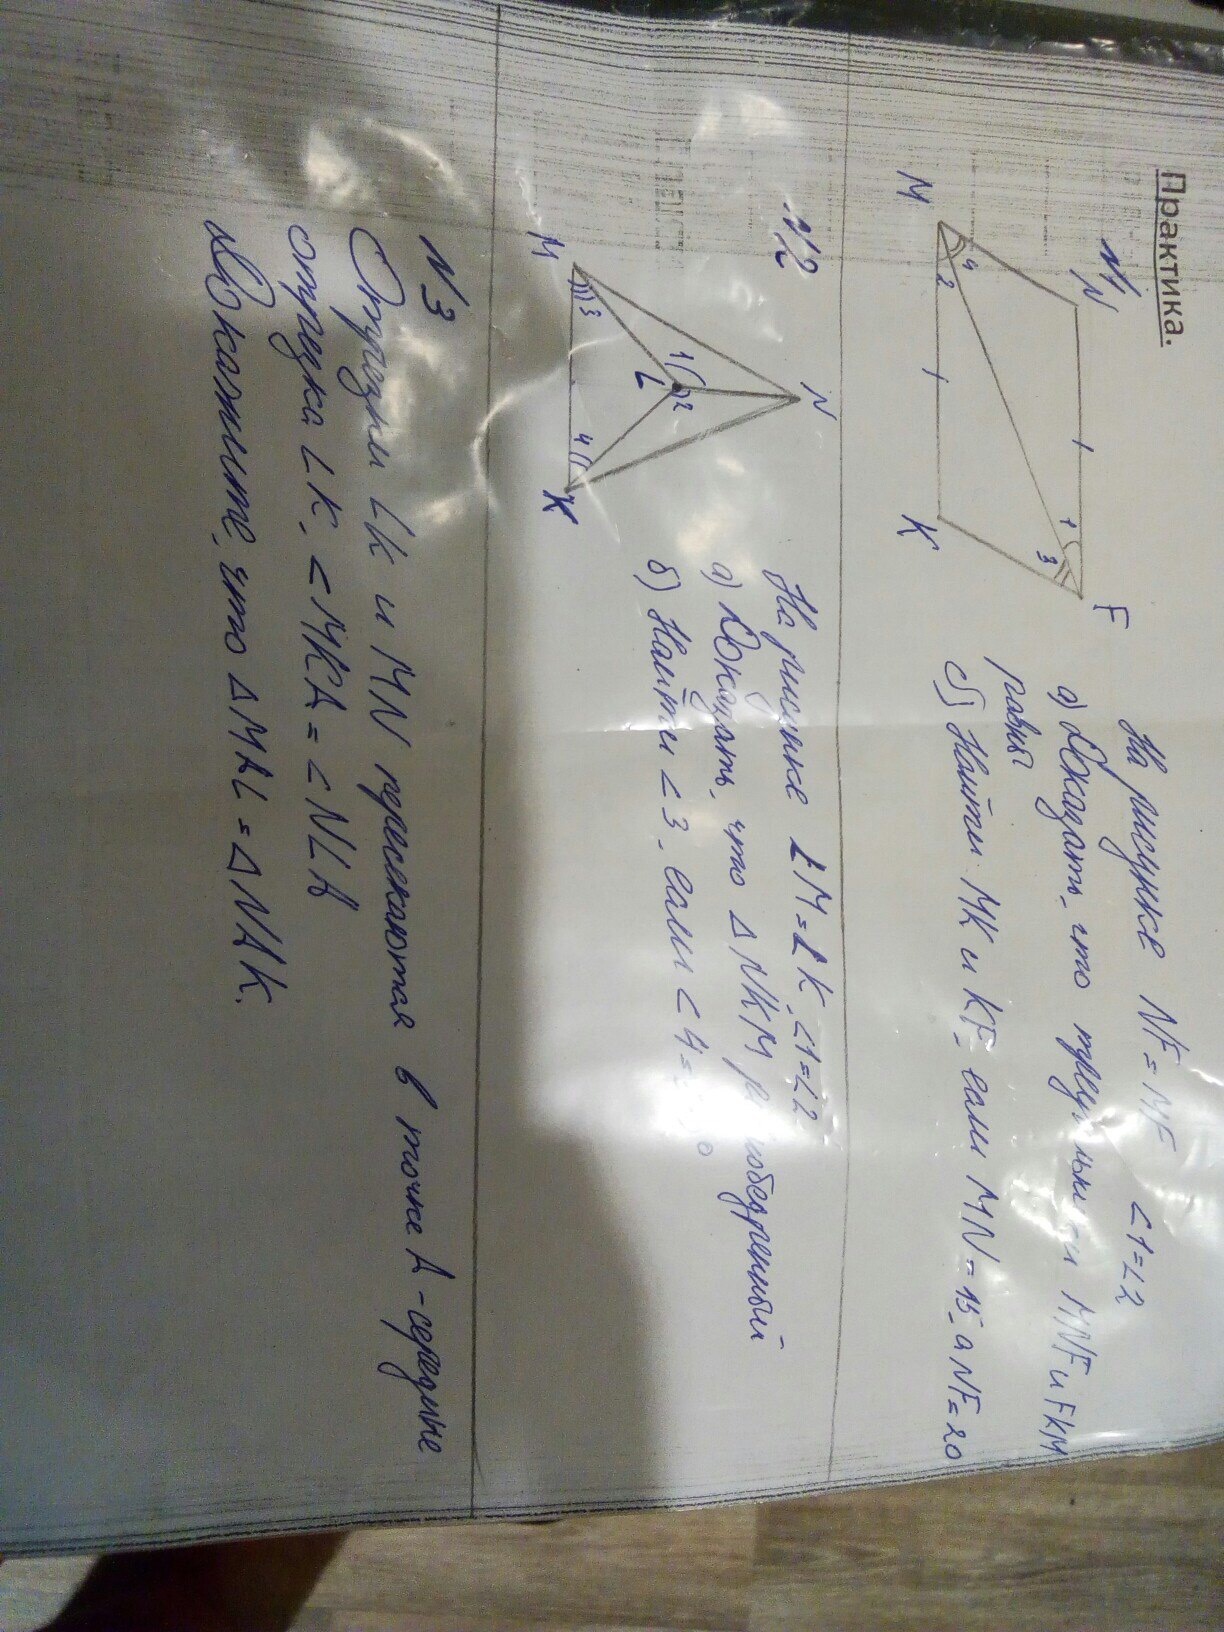 Практика.
N1
N F
M K
1 2 3 4
На рисунке NF = MF <1=<2
а) Доказать, что MNF и FKM
равны
б) Найти MK и KF, если MN = 15, а NF = 20
N2
N
M K
L
1 2 3 4
На рисунке LM = LK, <1=<2
а) Доказать, что Δ NKM равнобедренный
б) Найти <3, если <4 =
N3
Отрезки LK и MN пересекаются в точке A - середине
отрезка LK, <MKA = <NLA
Докажите, что Δ MAL = Δ NAK.